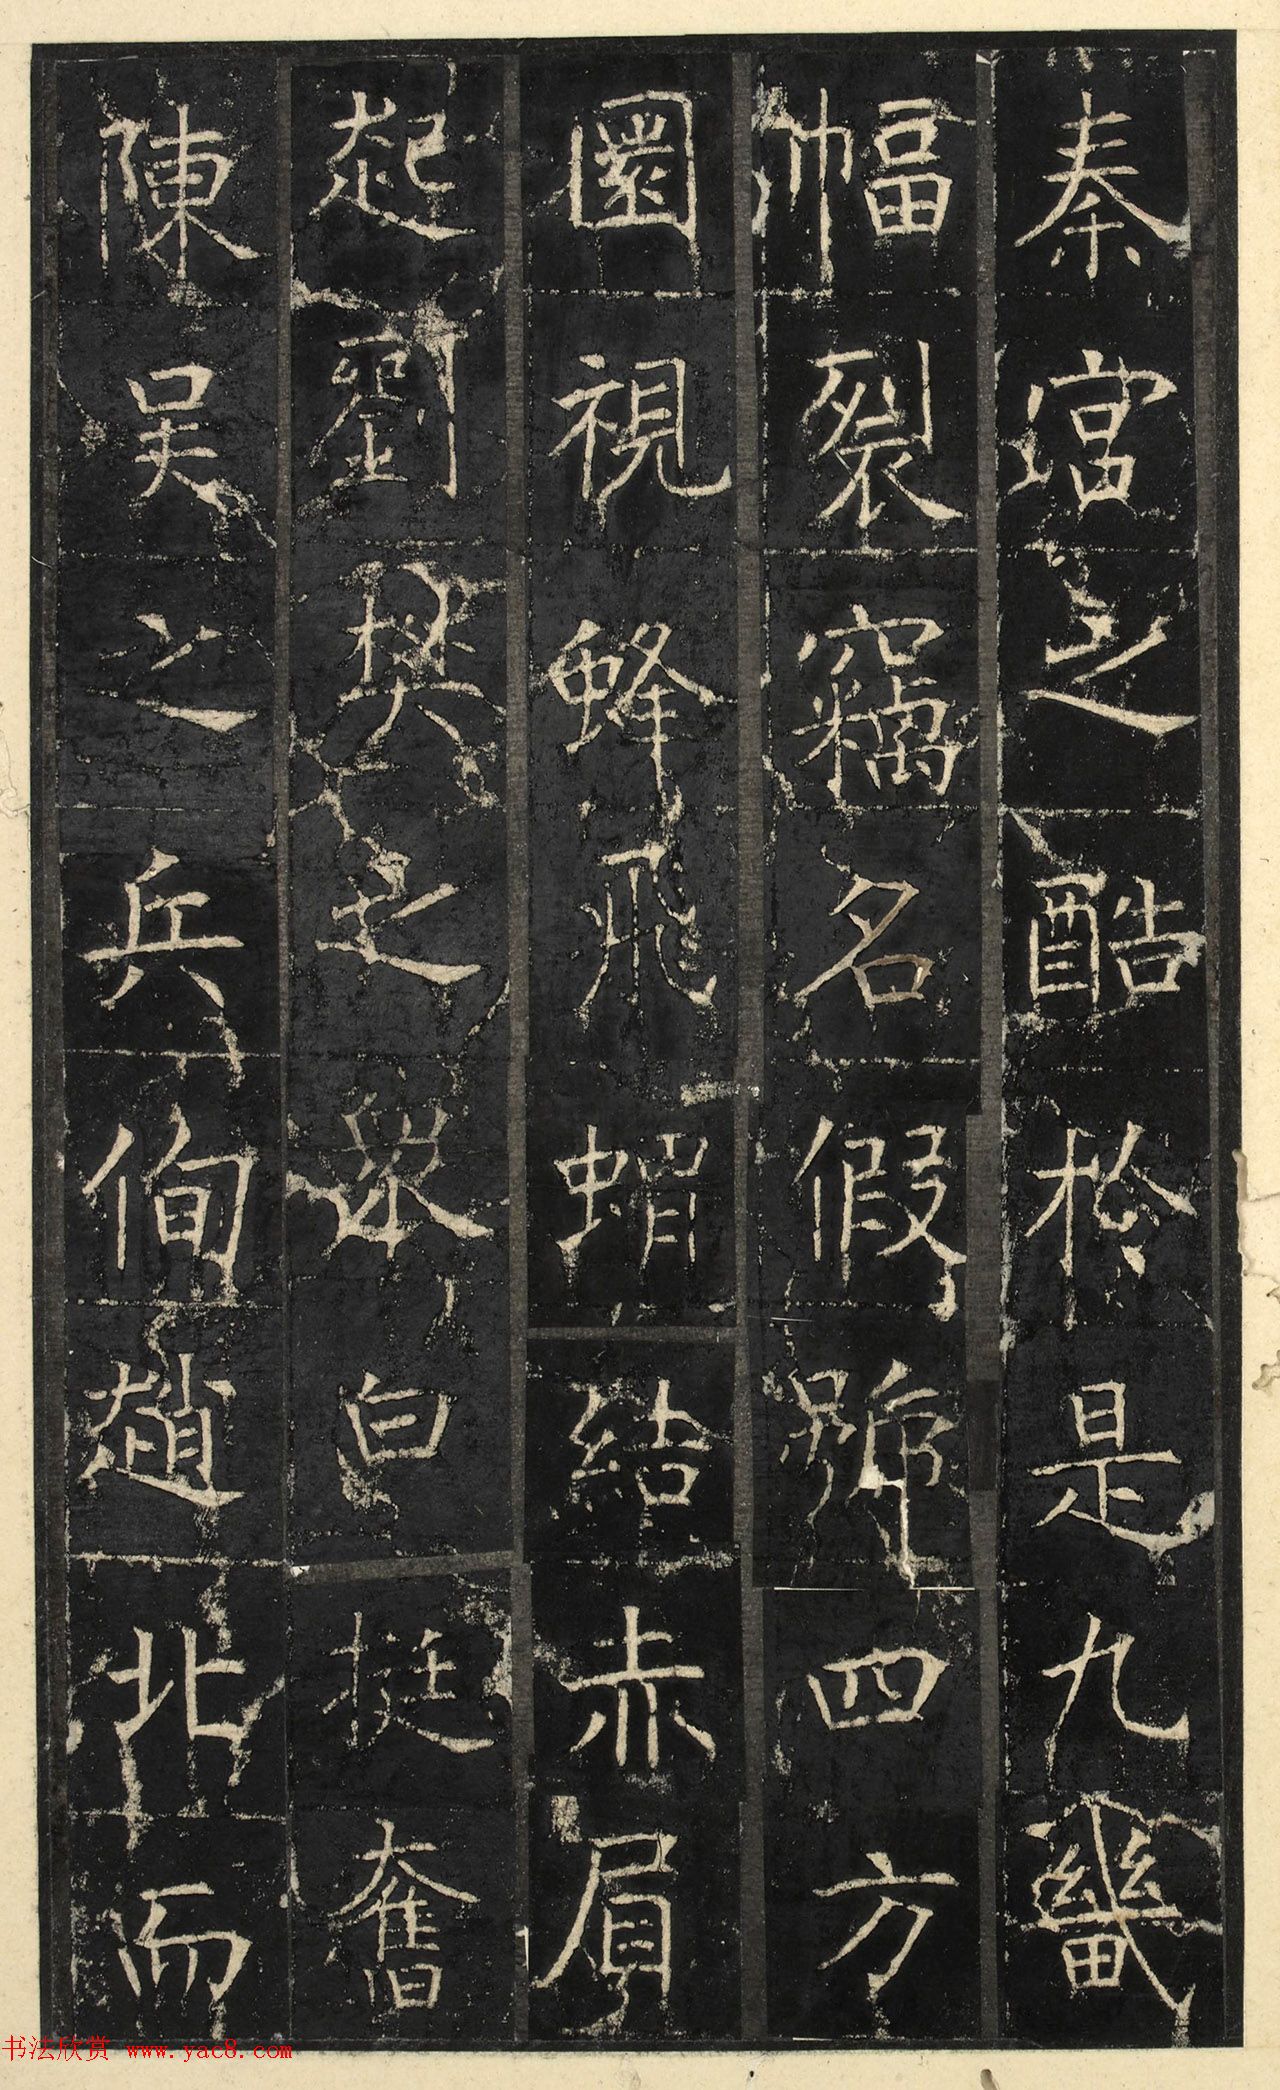 秦富之酷於是九畿
幅裂竊名假號四方
圜視蜂飛蝟結赤眉
起劉樊之眾白挺奮
陳吳之兵侚趙北而
书法欣赏 www.yac8.com